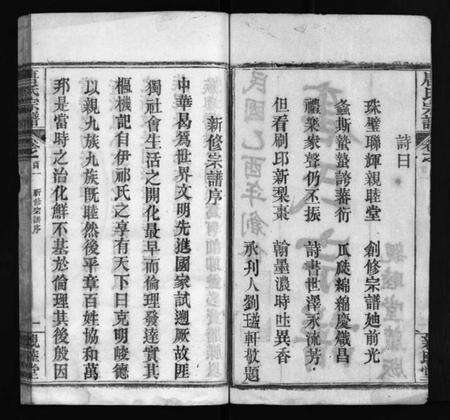 詩曰
珠璧聯輝親睦堂 創修宗譜廸前光
螽斯蟄蟄誇蕃衍 瓜瓞綿綿慶熾昌
禮樂家聲仍丕振 詩書世澤永流芳
但看刷印新梨棗 翰墨濃時吐異香
承刊人劉璡軒敬題
新修宗譜序
中華曷為世界文明先進國家試遡厥故匪
獨社會生活之開化最早而倫理發達實其
樞機記自伊祁氏之享有天下曰克明峻德
以親九族九族既睦然後平章百姓協和萬
邦是當時之治化鮮不基於倫理其後殷因
氏宗譜
卷之首
新修宗譜序
一
親睦堂